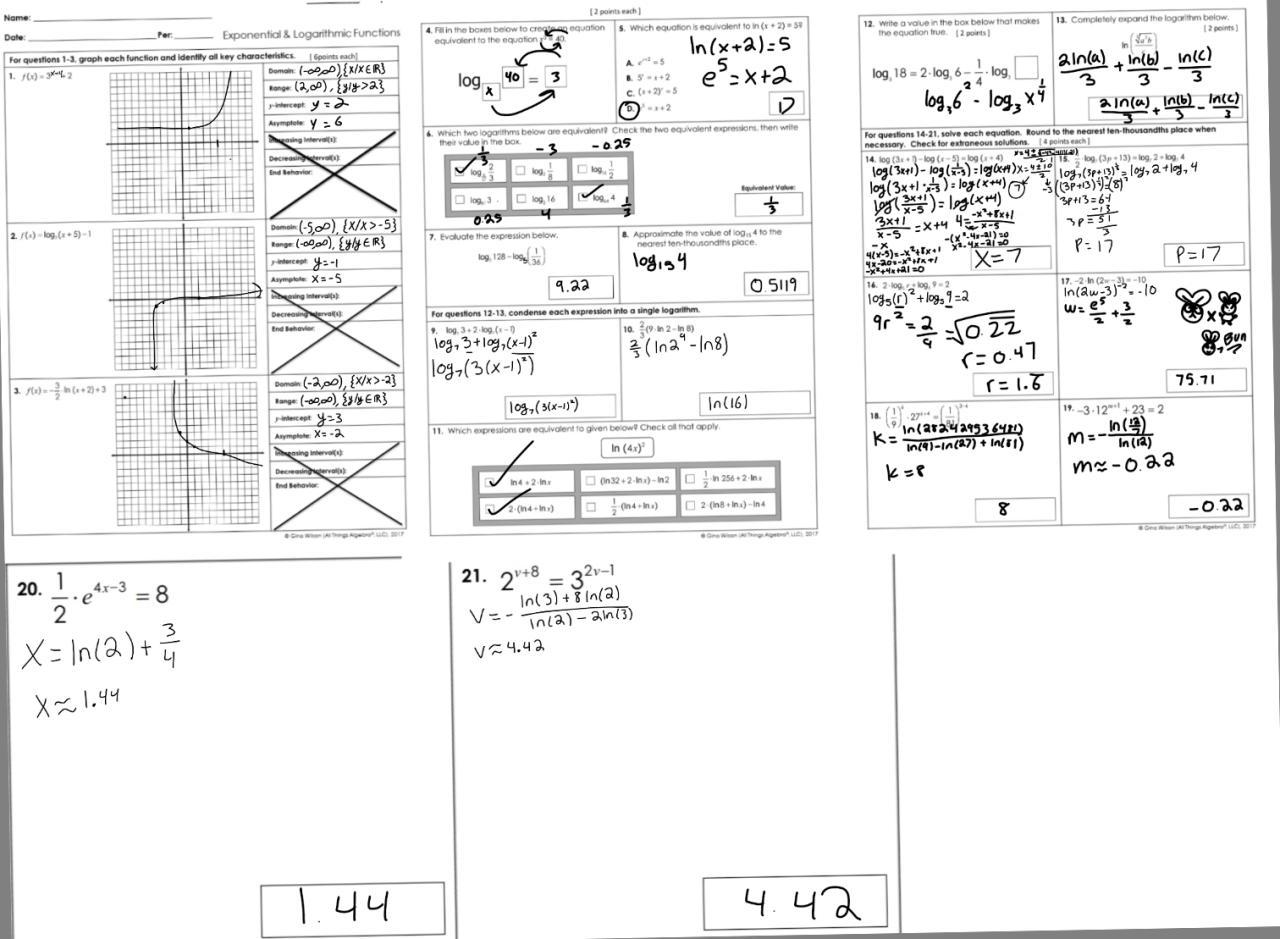 Name:
Date: Per: Exponential & Logarithmic Functions
For questions 1-3, graph each function and identify all key characteristics. [6points each]
1.
Domain: (-∞,∞),{x/x∈ℝ}
Range: (2,∞), {y/y>2}
y-intercept: y = 2
Asymptote: y = 6
Increasing Interval(s):
Decreasing Interval(s):
End Behavior:
2.
Domain: (-5,∞), {x/x>-5}
Range: (-∞,∞), {y/y∈ℝ}
y-intercept: y=-1
Asymptote: x=-5
Increasing Interval(s):
Decreasing Interval(s):
End Behavior:
3. f(x)=-3/2 ln(x+2)+3
Domain: (-2,∞), {x/x>-2}
Range: (-∞,∞), {y/y∈ℝ}
y-intercept: y=3
Asymptote: x=-2
Increasing Interval(s):
Decreasing Interval(s):
End Behavior:
© Gina Wilson (All Things Algebra®, LLC), 2017
[2 points each]
4. Fill in the boxes below to create an equation
equivalent to the equation
log x 40 = 3
5. Which equation is equivalent to ln (x + 2) = 5?
ln(x+2)=5
e^5 = x+2
A.
B. 5^e = x + 2
C. (x + 2)^e = 5
D.
D
6. Which two logarithms below are equivalent? Check the two equivalent expressions, then write
their value in the box.
1/3 -3 -0.25
0.25 4 1/3
Equivalent Value:
1/3
7. Evaluate the expression below.
9.22
8. Approximate the value of log₁₅ 4 to the
nearest ten-thousandths place.
log₁₅4
0.5119
For questions 12-13, condense each expression into a single logarithm.
9. log₇ 3 + 2·log₇(x − 1)
log₇ 3 + log₇(x-1)²
log₇(3(x-1)²)
log₇(3(x-1)²)
10. 2/3(9·ln 2 − ln 8)
2/3 (ln2⁹ - ln8)
ln(16)
11. Which expressions are equivalent to given below? Check all that apply.
ln (4x)²
ln 4 + 2·ln x
(ln32 + 2·ln x) − ln 2
1/2·ln 256 + 2·ln x
2·(ln 4 + ln x)
1/2·(ln 4 + ln x)
2·(ln 8 + ln x) − ln 4
© Gina Wilson (All Things Algebra®, LLC), 2017
12. Write a value in the box below that makes
the equation true. [2 points]
log₃ 18 = 2·log₃ 6 − 1/4·log₃
log₃6² - log₃ x^1/4
13. Completely expand the logarithm below.
[2 points]
2ln(a)/3 + ln(b)/3 - ln(c)/3
2ln(a)/3 + ln(b)/3 - ln(c)/3
For questions 14-21, solve each equation. Round to the nearest ten-thousandths place when
necessary. Check for extraneous solutions. [4 points each]
14. log (3x + 1) − log (x − 5) = log (x + 4)
log(3x+1) - log(1/x-5) = log(x+4)
log(3x+1 · 1/x-5) = log(x+4)
log(3x+1/x-5) = log(x+4)
3x+1/x-5 = x+4
4 = -x²+8x+1/x-5
4(x-5)=-x²+8x+1
4x-20=-x²+8x+1
-x²+4x+21=0
-(x²-4x-21)=0
x²-4x-21=0
x=7
15.
log₇(3p+13)^½ = log₇ 2 + log₇ 4
3p+13=64
-13
3p = 51
3
P = 17
P=17
16. 2·log₅ r + log₅ 9 = 2
log₅(r)² + log₅ 9 = 2
9r² = 2/9 = √0.22
r = 0.47
r = 1.6
17. -2·ln (2w − 3) = -10
ln(2w-3)^-2 = -10
w = e^5/2 + 3/2
x
Bun
75.71
18.
K = ln(282429536481)/ln(9)-ln(27)+ln(81)
K = 8
8
19. -3·12^m+1 + 23 = 2
m ≈ -0.22
-0.22
© Gina Wilson (All Things Algebra®, LLC), 2017
20. 1/2 · e^4x−3 = 8
x = ln(2) + 3/4
x ≈ 1.44
1.44
21. 2^v+8 = 3^2v−1
V = - ln(3)+8ln(2)/ln(2)-2ln(3)
v ≈ 4.42
4.42